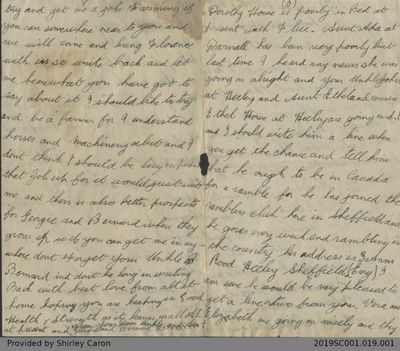 try and get me a job Farming if
you can somewhere near to you and
we will come and bring Florence
with us so write back and let
me know what you have got to
say about it I should like to try
and be a farmer for I understand
horses and machinery a bit and I
dont think I should be long in
that Job up for it would just suit
me and their is also better prospects
for Georgie and Bernard when they
grow up so if you can get me in any-
where dont forget your Uncle &
Bernard and dont be long in writing
Back with best love from all at
home hoping you are keeping in Good
Health & strength as it leaves us all
at present
Dorothy House is poorly in Bed at
present with Aunt Ada at
Darnall has been very poorly but
last time I heard any news she was
going on alright and your Uncle John
at Heeley and Aunt Ethel and cousin
Ethel House at Heeley are going on
and I should write him a line when
you get the chance and tell him
that he ought to be in Canada
for a ramble for he has joined the
ramblers club here in Sheffield and
he goes every weekend rambling in
the county his address is
Road Heeley Sheffield I
am sure he would be very pleased to
get a line or two from you. Vera and
Elizabeth are going on nicely and they
Provided by Shirley Caron
2019SC001.019.001